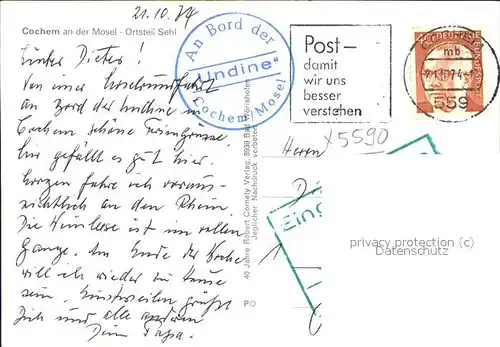 21.10.74
Cochem an der Mosel - Ortsteil Sehl
Lieber Dieter!
Von einer Moselrundfahrt
an Bord der Undine in
Cochem schöne Feriengrüsse.
Mir gefällt es gut hier.
Morgen fahre ich voraus-
sichtlich an den Rhein.
Die Weinlese ist im vollen
Gange. Am Ende der Woche
will ich wieder zu Hause
sein. Einstweilen grüßt
Dich und alle anderen
Dein Papa.
An Bord der
"Undine"
Cochem/Mosel
Post-
damit
wir uns
besser
verstehen
mb
559
x5590
Herrn
D
Eing
40 Jahre Robert Cornely Verlag, 8939 Bad Wörishofen
Jeglicher Nachdruck verboten
PO
privacy protection (c)
Datenschutz